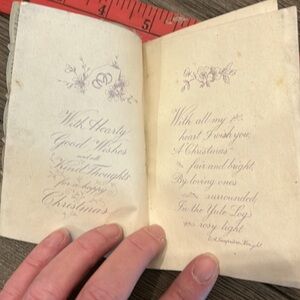 4
5
With Hearty
Good Wishes
and all
Kind Thoughts
for a happy
Christmas
With all my
heart I wish you,
A Christmas
fair and bright,
By loving ones
surrounded,
In the Yule Log's
rosy light